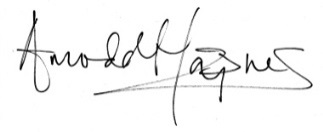 Arnold Haynes